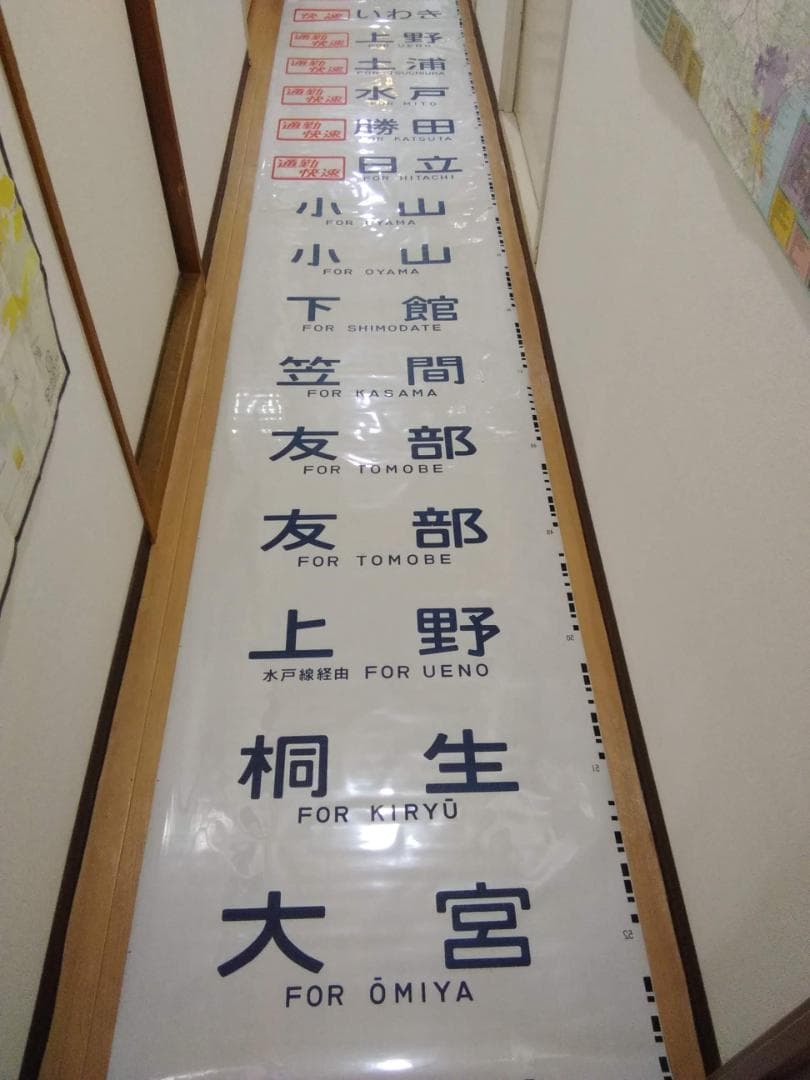 快速 いわき
通勤快速 上野
FOR UENO
通勤快速 土浦
FOR TSUCHIURA
通勤快速 水戸
FOR MITO
通勤快速 勝田
FOR KATSUTA
通勤快速 日立
FOR HITACHI
小山
FOR OYAMA
小山
FOR OYAMA
下館
FOR SHIMODATE
笠間
FOR KASAMA
友部
FOR TOMOBE
友部
FOR TOMOBE
上野
水戸線経由 FOR UENO
50
桐生
FOR KIRYŪ
51
大宮
FOR ŌMIYA
52